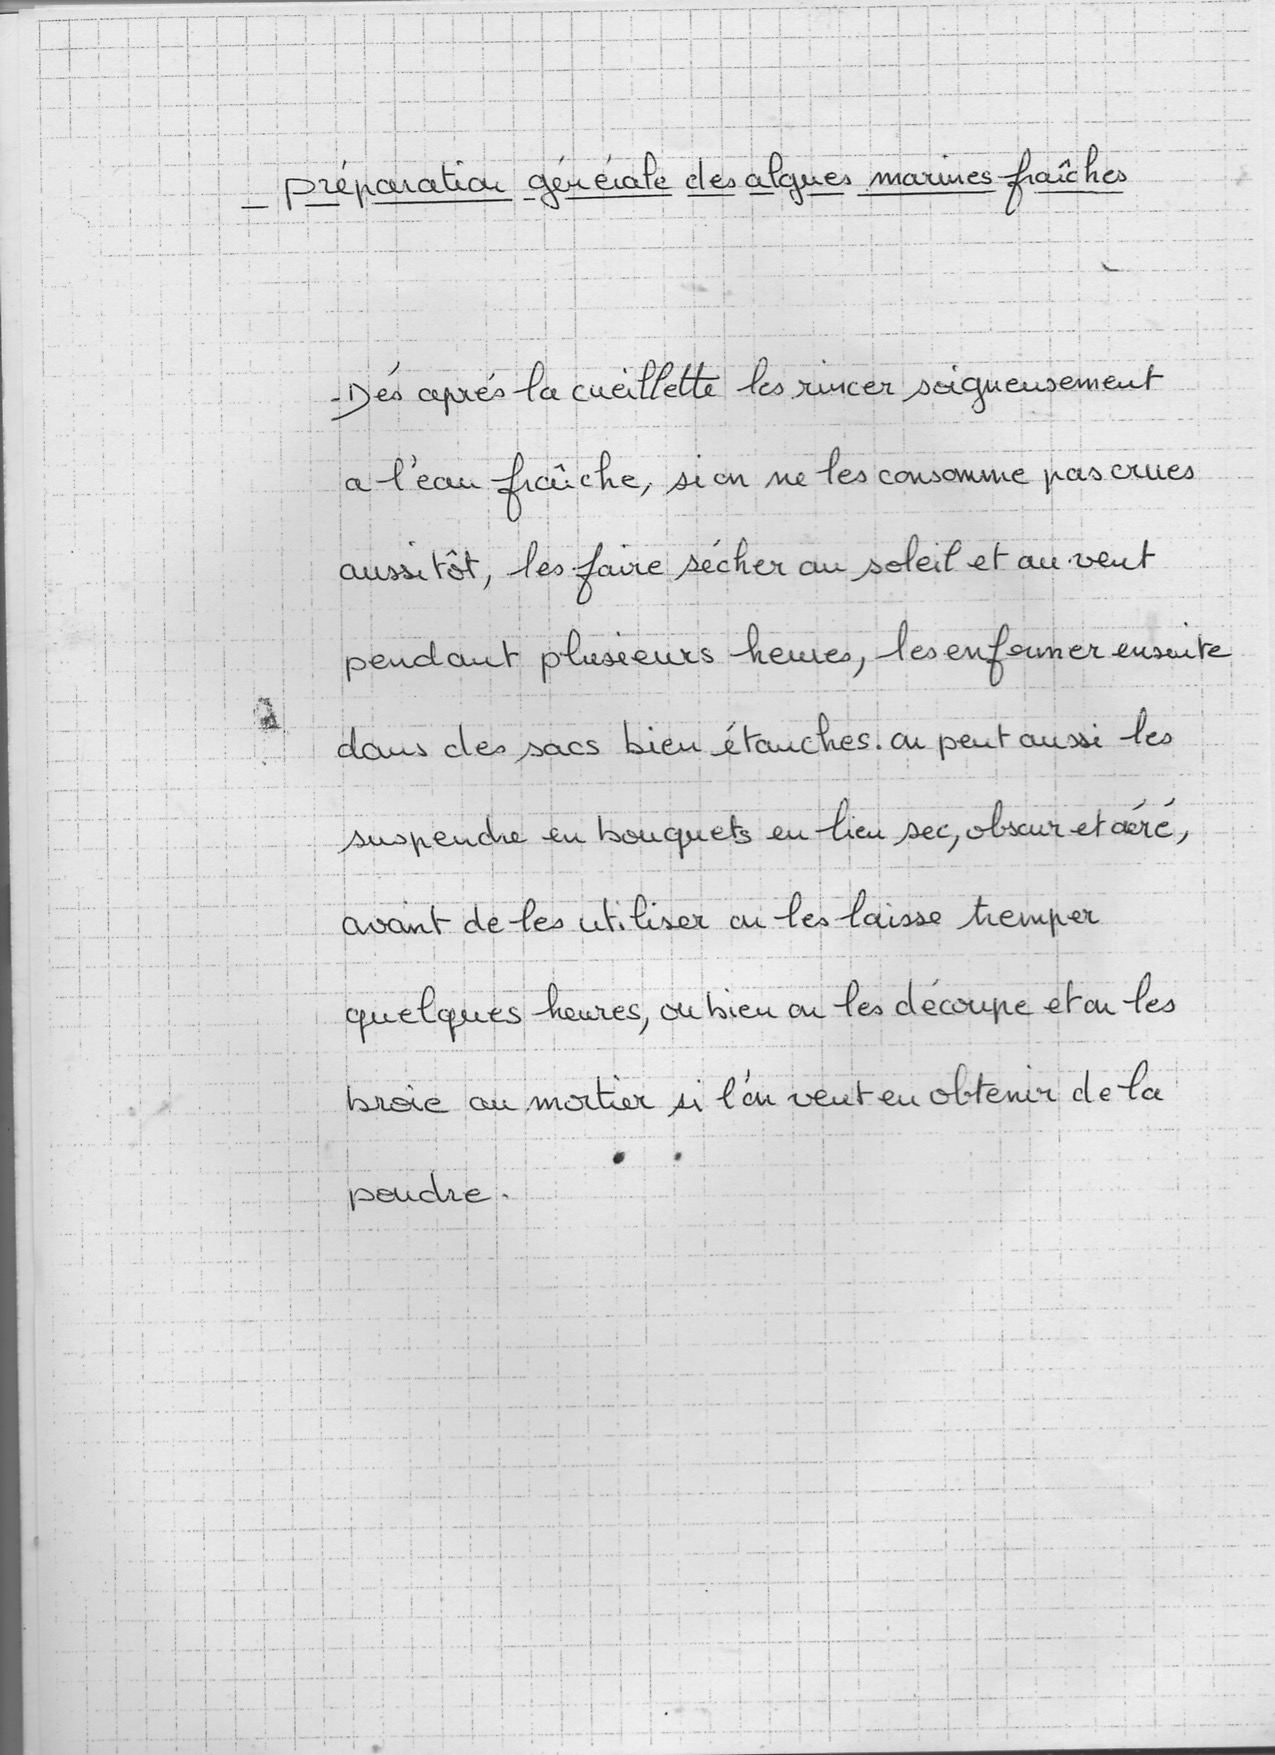 _ préparation générale des algues marines fraîches
- Dés aprés la cueillette les rincer soigneusement
a l'eau fraîche, si on ne les consomme pas crues
aussitôt, les faire sécher au soleil et au vent
pendant plusieurs heures, les enfermer ensuite
dans des sacs bien étanches. on peut aussi les
suspendre en bouquets en lieu sec, obscur et aéré,
avant de les utiliser on les laisse tremper
quelques heures, ou bien on les découpe et on les
broie au mortier si l'on veut en obtenir de la
poudre.